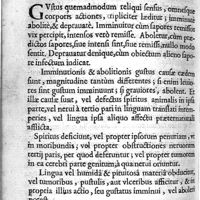 GVstus quemadmodum reliqui sensus, omnesque
corporis actiones, tripliciter læditur; imminutè
abolitè, & deprauatè. Imminuitur cùm sapores remissè
vix percipit, intensos verò remissè. Aboletur, cùm præ-
dictos sapores, siue intensi sint, siue remissi, nullo modo
sentit. Deprauatur denique, cùm obiectum alieno sapo-
re infectum iudicat.
Imminutionis & abolitionis gustus causæ eædem
sunt, magnitudine tantùm differentes; si enim leuio-
res sint gustum imminuunt; si grauiores, abolent. Et
illæ causæ sunt, vel defectus spirituum animalis in ipsa
parte, vel nerui à tertio pari in linguam transſati intem-
peries, vel ipsa lingua alio affectu præternaturali
afflicta.
Spiritus deficiunt, vel propter ipsorum penuriam, vt
in moribundis; vel propter obstructiones neruorum
tertij paris, per quos deferuntur; vel propter commune
in ea cerebri parte genitum, à qua nerui oriuntur.
Lingua vel humida & pituitosa materia obducitur,
vel tumoribus, pustulis, aut vlceribus afficitur, & in
propria illius actio, seu gustatus imminui, vel aboleri